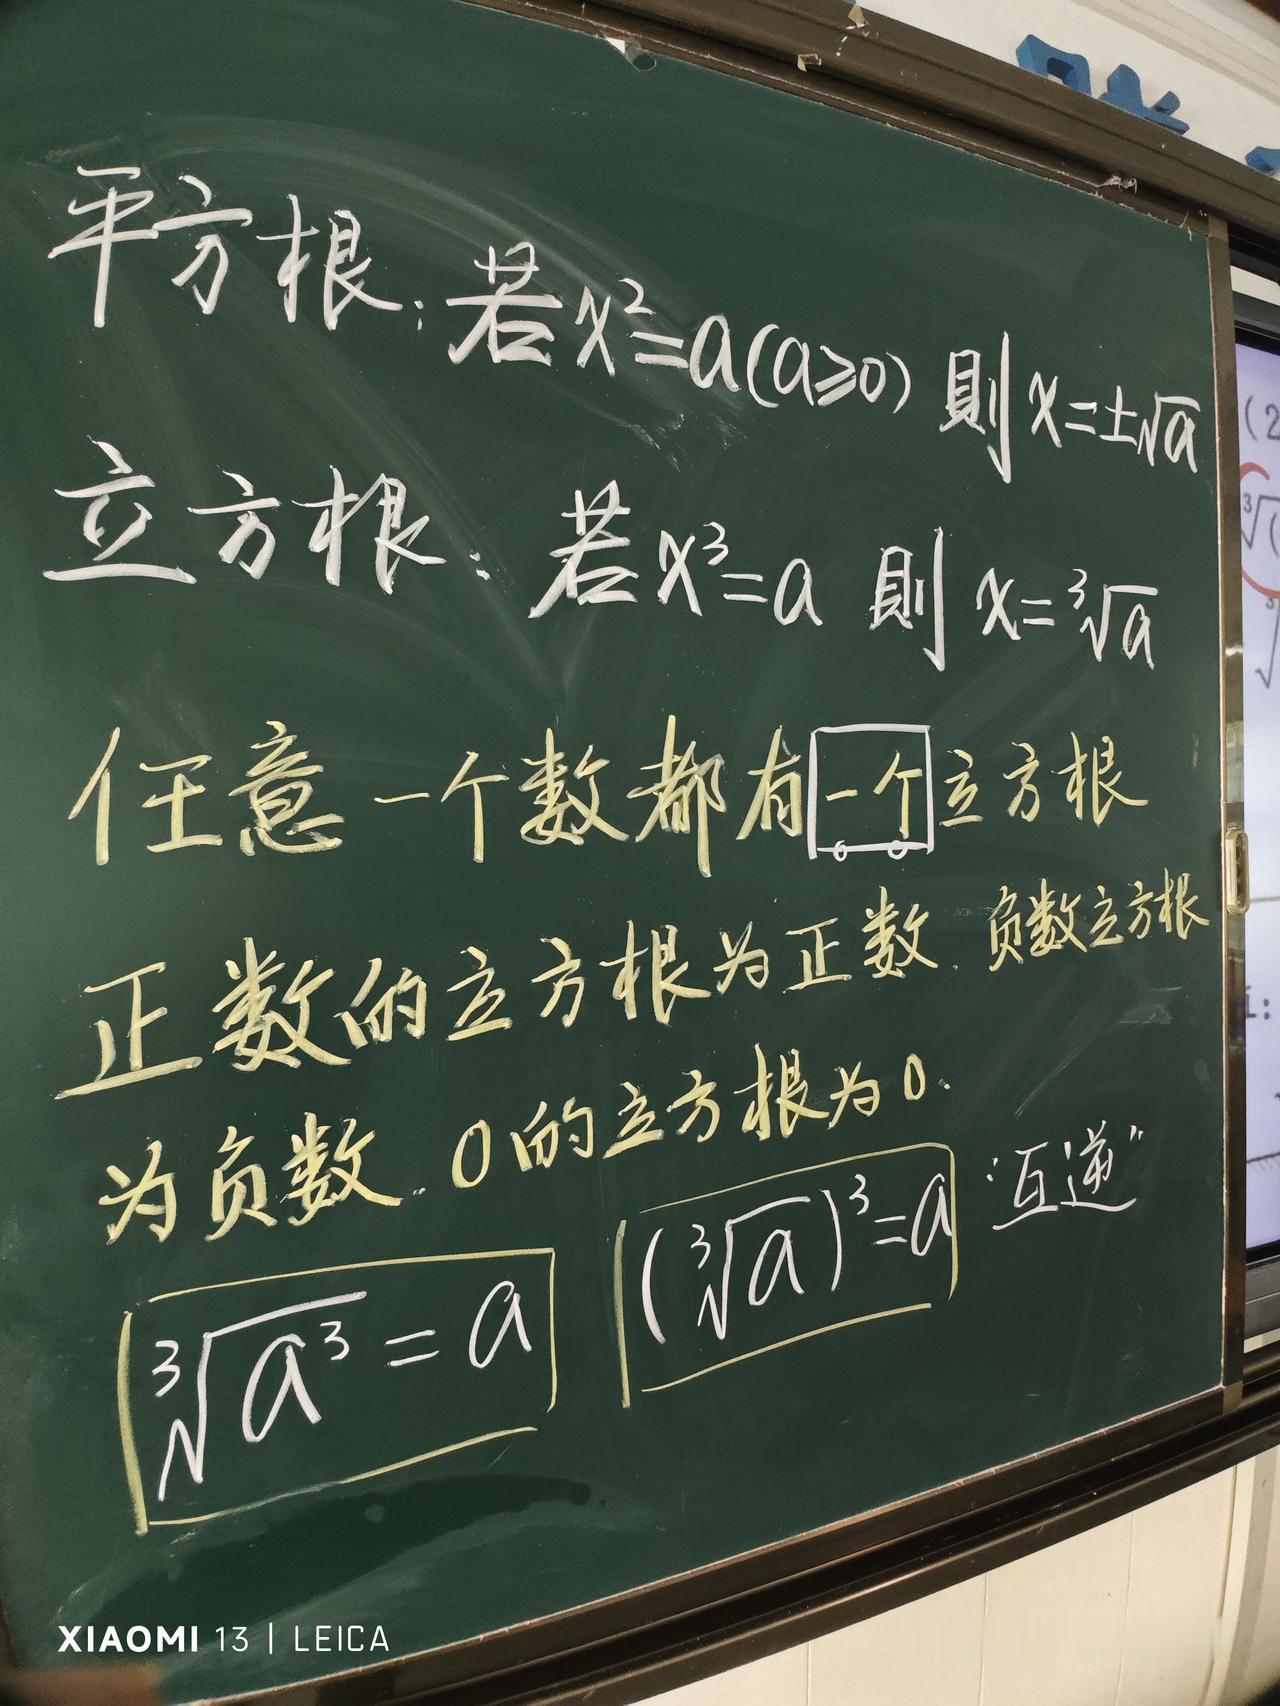 平方根：若x²=a(a≥0) 則 x=±√a
立方根：若x³=a 則 x=³√a
任意一个数都有一个立方根
正数的立方根为正数. 负数立方根
为负数. 0的立方根为0.
³√a³ = a (³√a)³=a "互逆"
XIAOMI 13 | LEICA